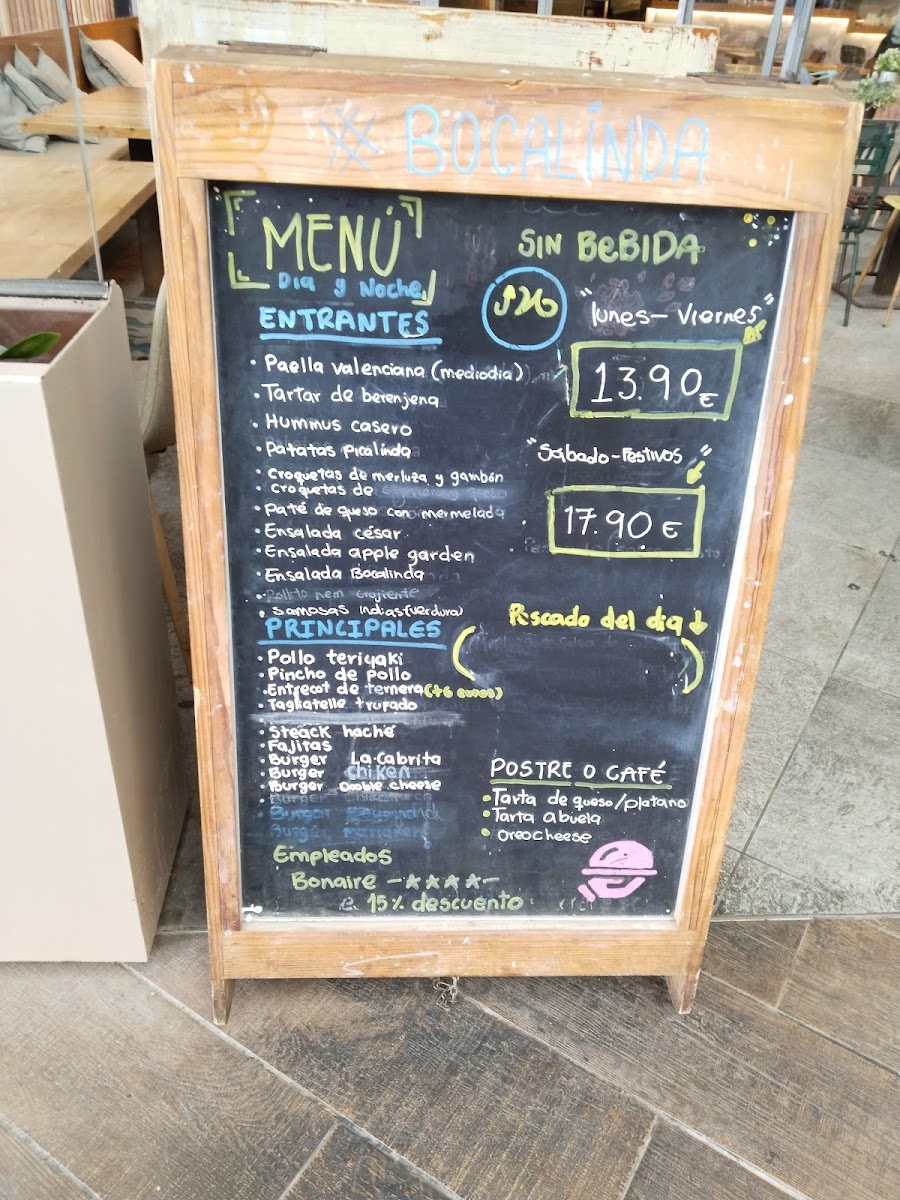 BOCALÍNDA
MENÚ
Dia y Noche
SIN BeBIDA
"lunes - Viernes"
13.90€
"Sábado - Festivos"
17.90 €
ENTRANTES
· Paella valenciana (mediodia)
· Tartar de berenjena
· Hummus casero
· Patatas Picalinda
· Croquetas de merluza y gambón
· Croquetas de
· Paté de queso con mermelada
· Ensalada césar
· Ensalada apple garden
· Ensalada Bocalinda
· Samosas indias (verdura)
PRINCIPALES
· Pollo teriyaki
· Pincho de pollo
· Entrecot de ternera (+6 euros)
· Tagliatelle trufado
· Steack haché
· Fajitas
· Burger La Cabrita
· Burger Chiken
· Burger Double cheese
Pescado del dia
POSTRE O CAFÉ
· Tarta de queso/platano
· Tarta abuela
· Oreocheese
Empleados
Bonaire
15% descuento